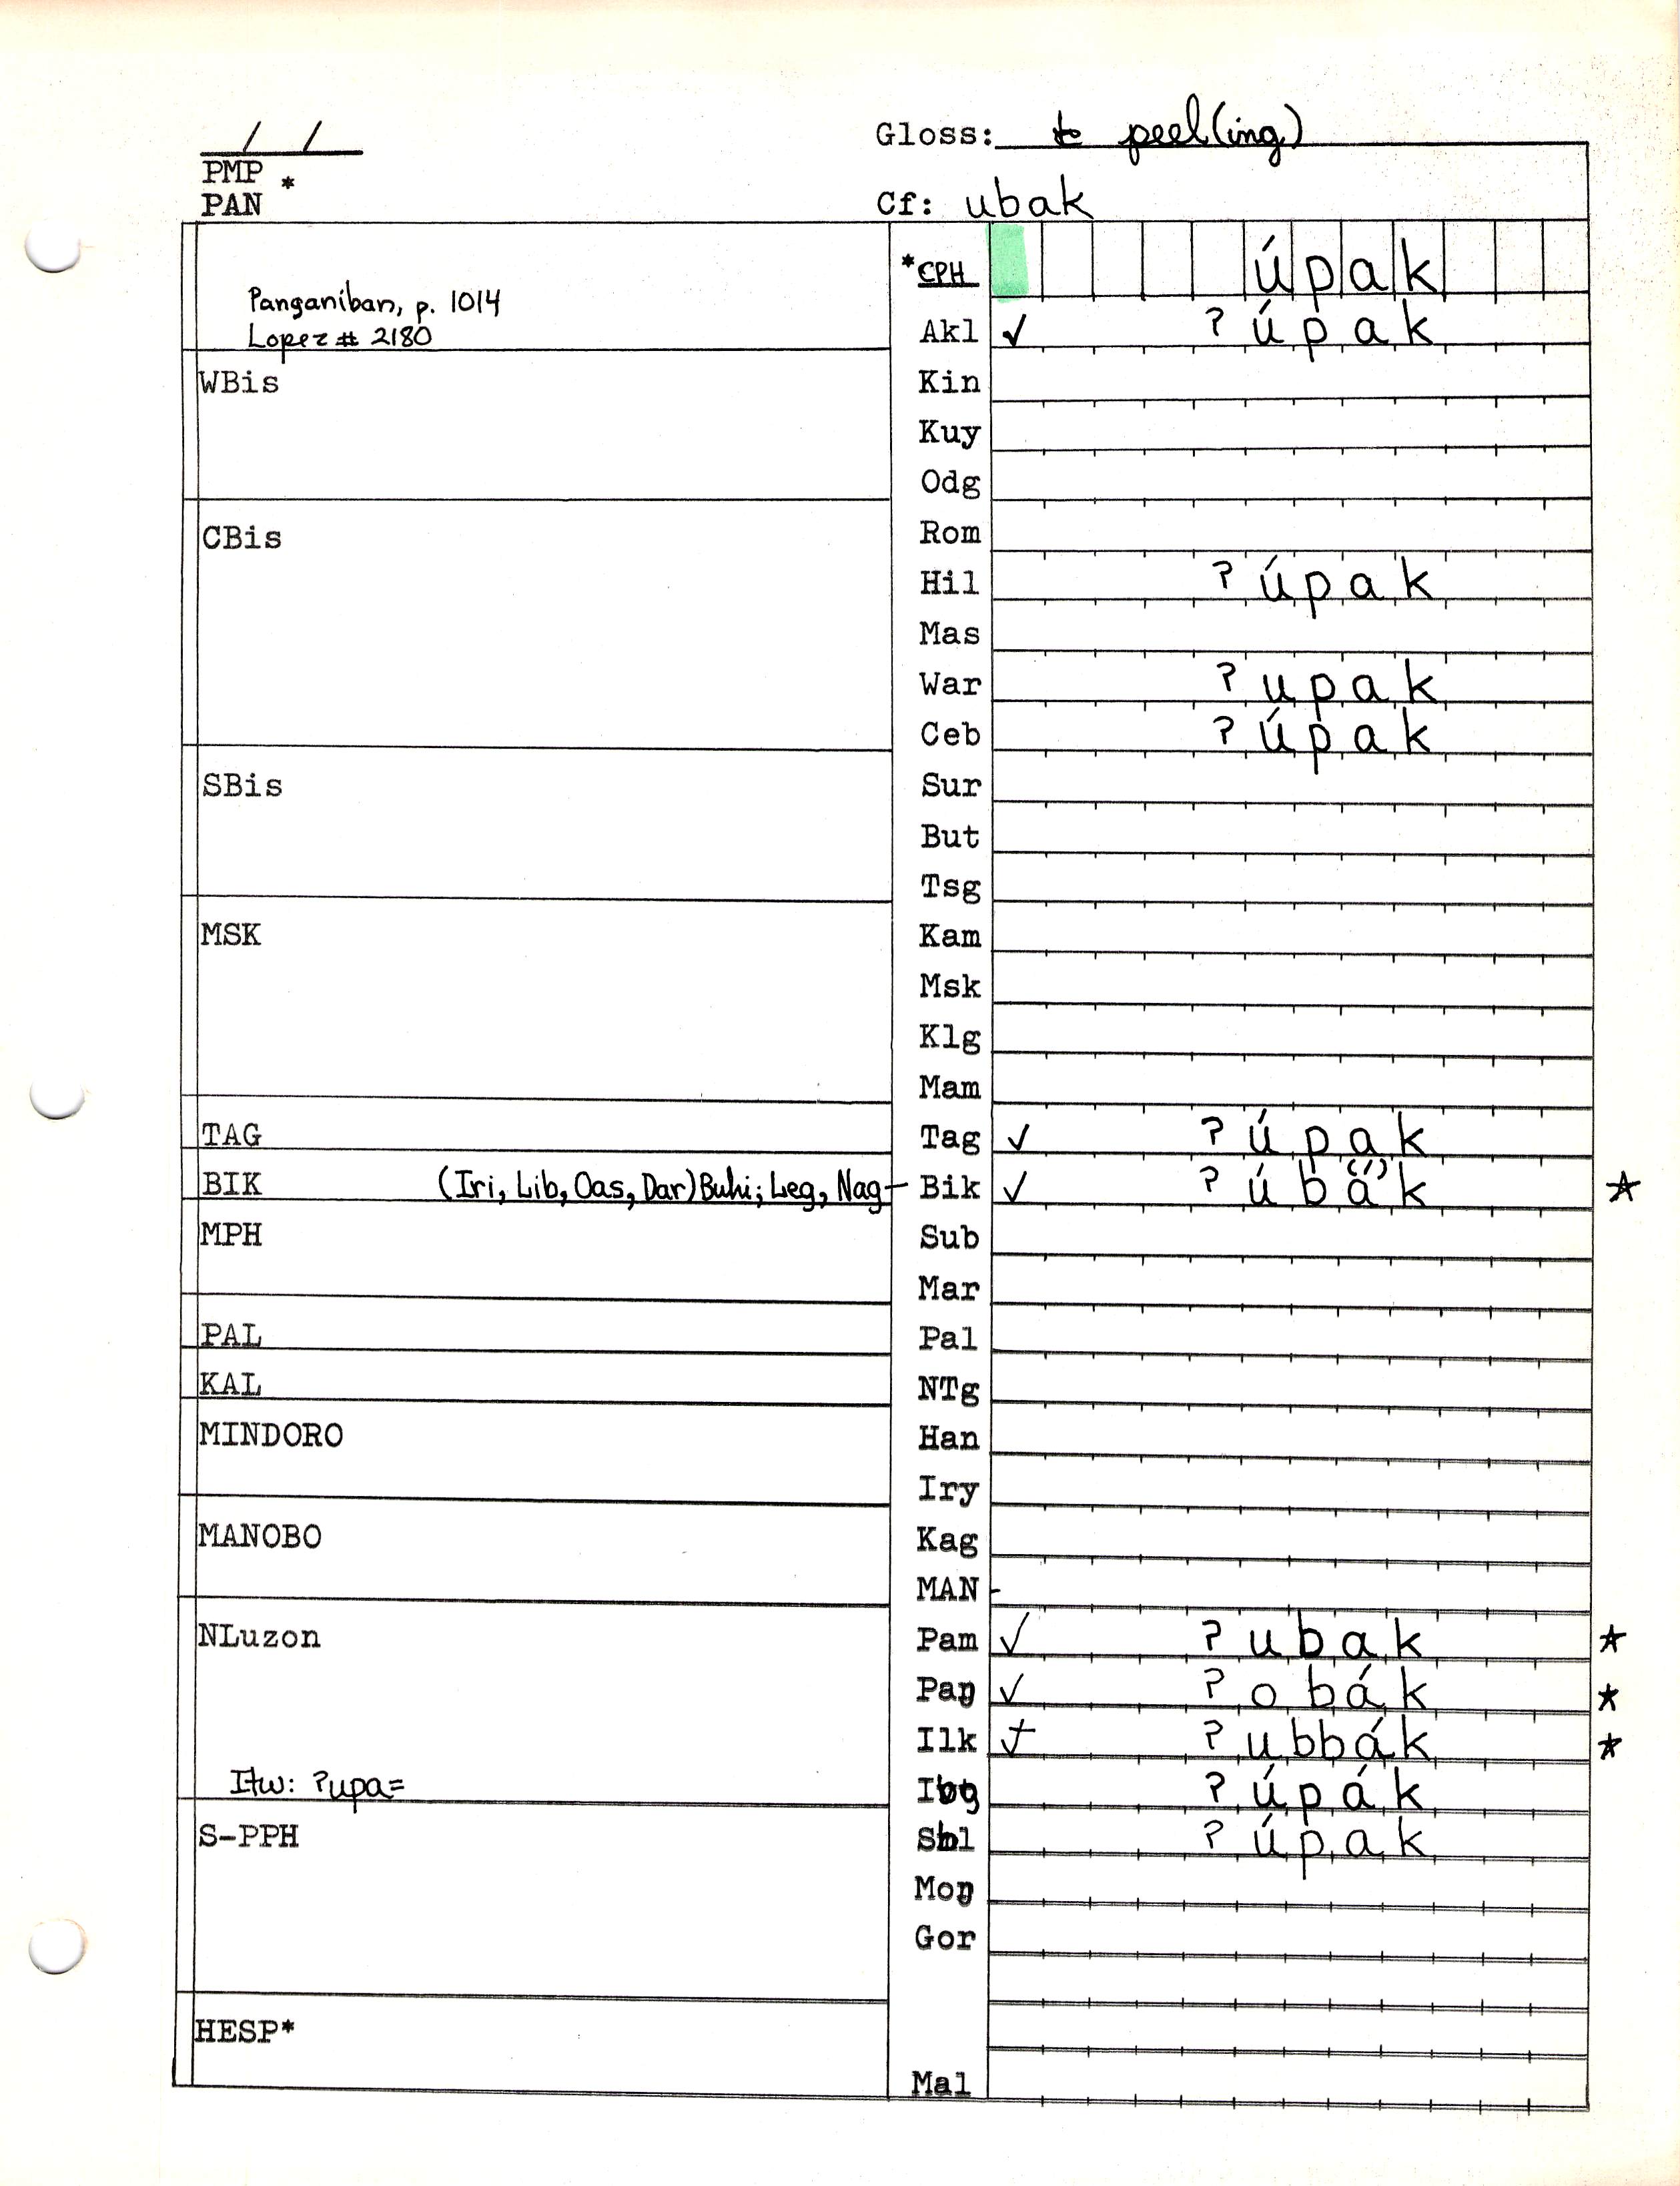 / /
Gloss: to peel(ing)
PMP *
PAN
Cf: ubak
*CPH úpak
Panganiban, p. 1014
Lopez # 2180
Akl ✓ ʔúpak
WBis
Kin
Kuy
Odg
CBis
Rom
Hil ʔúpak
Mas
War ʔupak
Ceb ʔúpak
SBis
Sur
But
Tsg
MSK
Kam
Msk
Klg
Mam
TAG
Tag ✓ ʔúpak
BIK (Iri, Lib, Oas, Dar) Buhi; Leg, Nag - Bik ✓ ʔúbá(´)k ☆
MPH
Sub
Mar
PAL
Pal
KAL
NTg
MINDORO
Han
Iry
MANOBO
Kag
MAN-
NLuzon
Pam ✓ ʔubak ☆
Paŋ ✓ ʔobák ☆
Ilk ✓ ʔubbák ☆
Itw: ʔupa=
Ibg ʔúpák
S-PPH
Sbl ʔúpak
Moŋ
Gor
HESP*
Mal